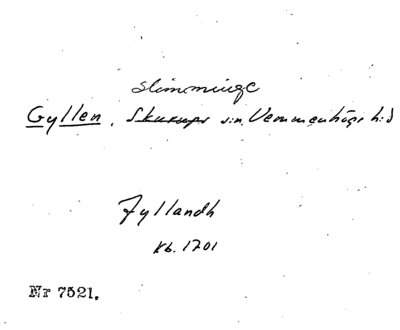 Slimminge
Gyllen, Skurups sn. Vemmenhögs hd
Jyllandh
Kb. 1701
Nr 7521.